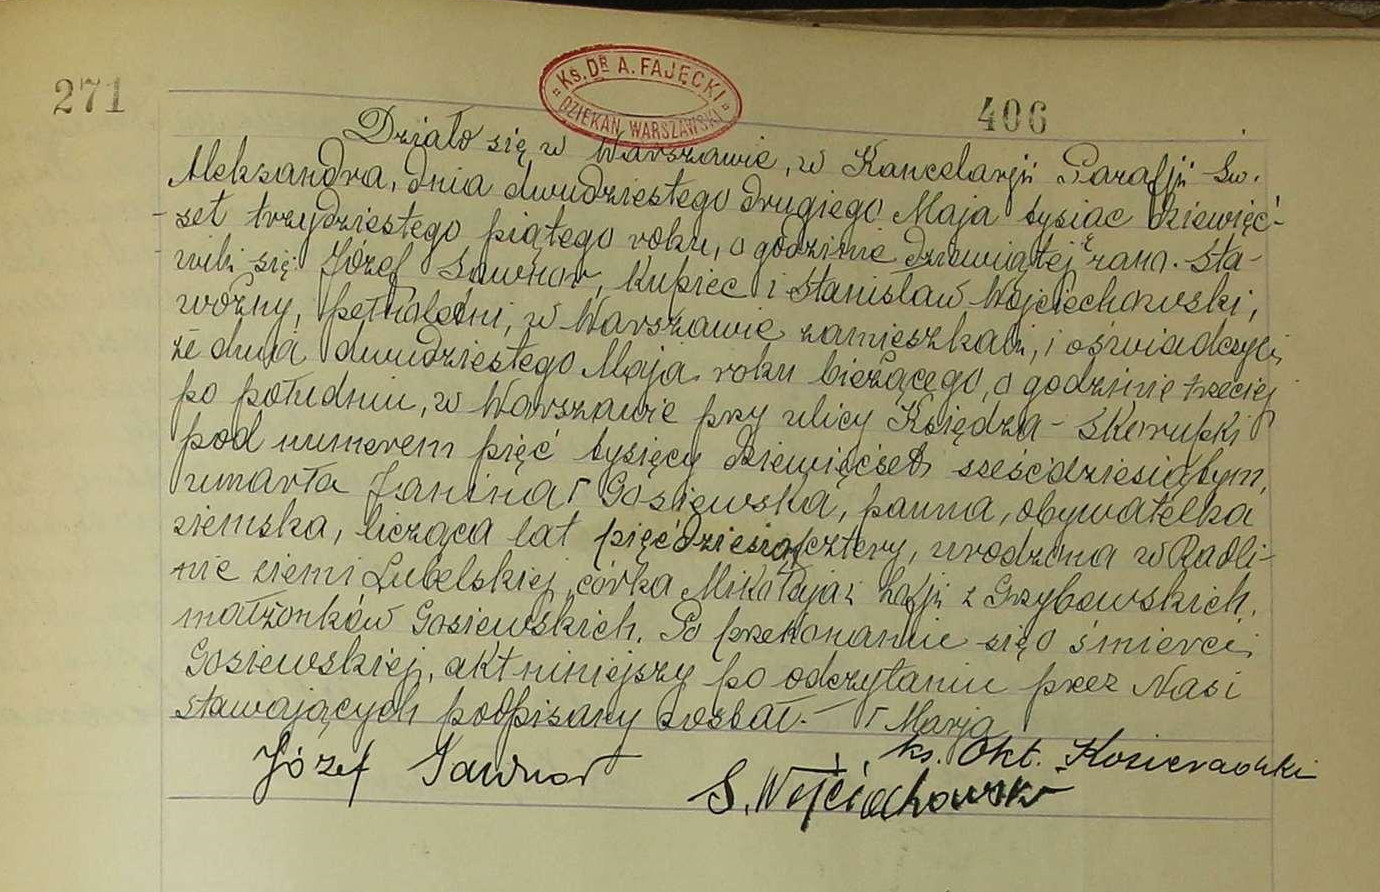 271
Ks. DR A. FAJĘCKI
DZIEKAN WARSZAWSKI
406
Działo się w Warszawie, w Kancelarji Parafji Św.
Aleksandra, dnia dwudziestego drugiego Maja tysiac dziewięć-
set trzydziestego piątego roku, o godzinie dziewiątej rano. Sta-
wili się: Józef Sawnor, kupiec i Stanisław Wojciechowski,
woźny, pełnoletni, w Warszawie zamieszkali, i oświadczyli,
że dnia dwudziestego Maja roku bieżącego, o godzinie trzeciej
po południu, w Warszawie przy ulicy Księdza-Skorupki
pod numerem pięć tysięcy dziewięćset sześćdziesiątym,
umarła Janina Γ Gosiewska, panna, obywatelka
ziemska, licząca lat pięćdziesiątcztery, urodzona w Radli-
nie ziemi Lubelskiej, córka Mikołaja i Zofji z Grzybowskich,
małżonków Gosiewskich. Po przekonaniu się o śmierci
Gosiewskiej, akt niniejszy po odczytaniu przez Nas i
stawających podpisany został.- Γ Marja
ks. Okt. Kosieradzki
Józef Sawnor S. Wojciechowski